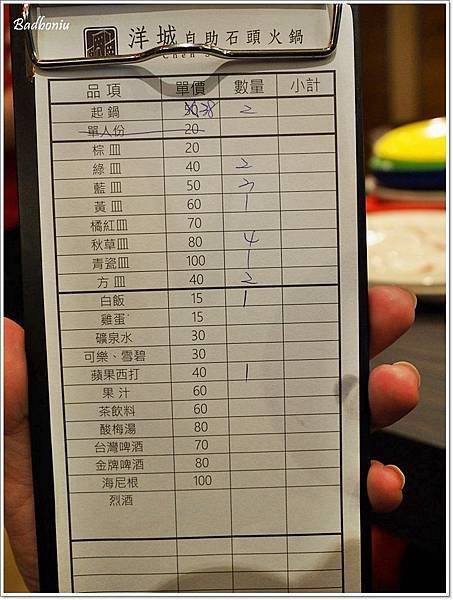 Badboniu
洋城自助石頭火鍋
品項 單價 數量 小計
起鍋 38 2
單人份 20
棕皿 20
綠皿 40 2
藍皿 50
黃皿 60 1
橘紅皿 70
秋草皿 80 4
青瓷皿 100 1
方皿 40 2
白飯 15 1
雞蛋 15
礦泉水 30
可樂、雪碧 30
蘋果西打 40 1
果汁 60
茶飲料 60
酸梅湯 80
台灣啤酒 70
金牌啤酒 80
海尼根 100
烈酒